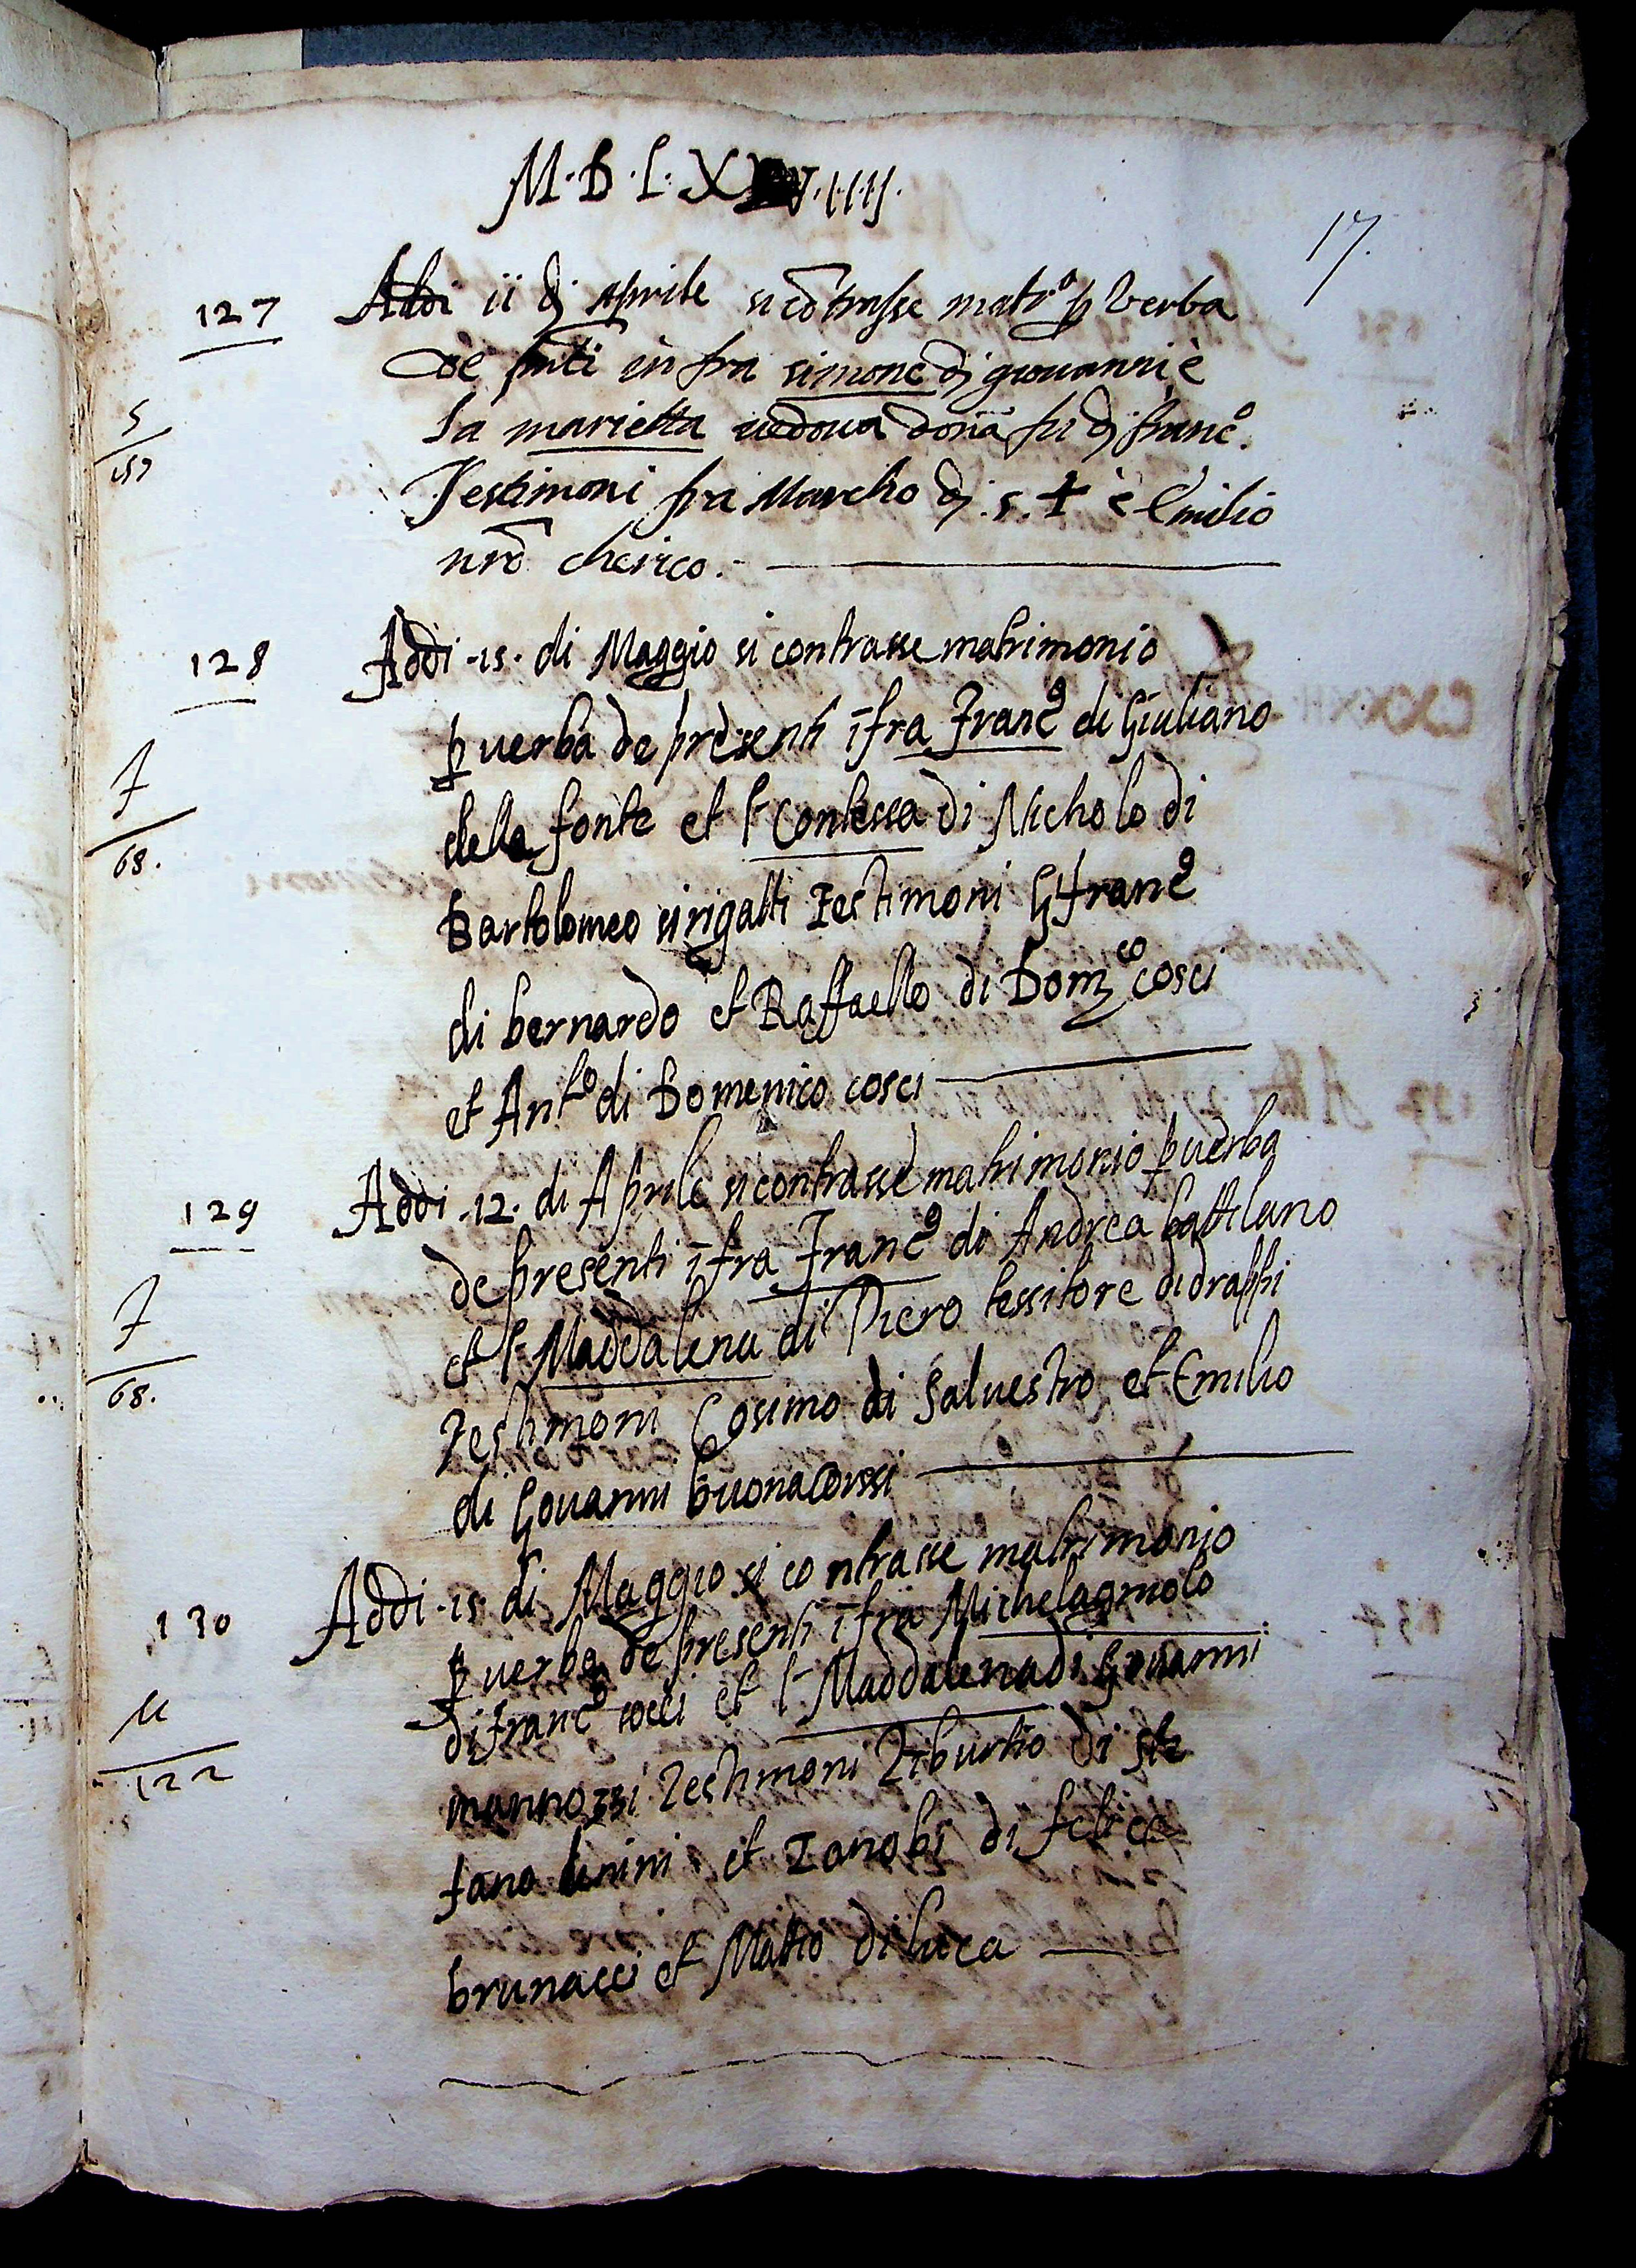 M·D·L·X V·IIII·
17.
127 Addi ii di Aprile si cōtrasse matr.º ꝑ verba
de pñti in fra simone di giovanni è
la marietta vedova doña fu di franc.º
5
57
Testimoni fra Marcho di .S. ✝ è Emilio
nrō cherico.
128 Addi .15. di Maggio si contrasse matrimonio
ꝑ verba de presenti īfra Franc.º di Giuliano
F
68.
della fonte et l Contessa di Nicholo di
Bartolomeo sirigatti Testimoni Gfranc.º
di bernardo et Raffaello di Domco cosci
et Ant.º di Domenico cosci
129 Addi .12. di Aprile si contrasse matrimonio ꝑ verba
de presenti īfra Franc.º di Andrea battilano
F
68.
et l Maddalena di Piero tessitore di drappi
Testimoni Cosimo di Salvestro et Emilio
di Govanni buonacorssi
130 Addi .15. di Maggio si contrasse matrimonio
ꝑ verba de presenti īfra Michelagniolo
di Franc.º cocci et l Maddalena di Govanni
M
122
mannozzi Testimoni Tiburtio di ste
fano et Zanobi di felice
brunacci et Matto di luca